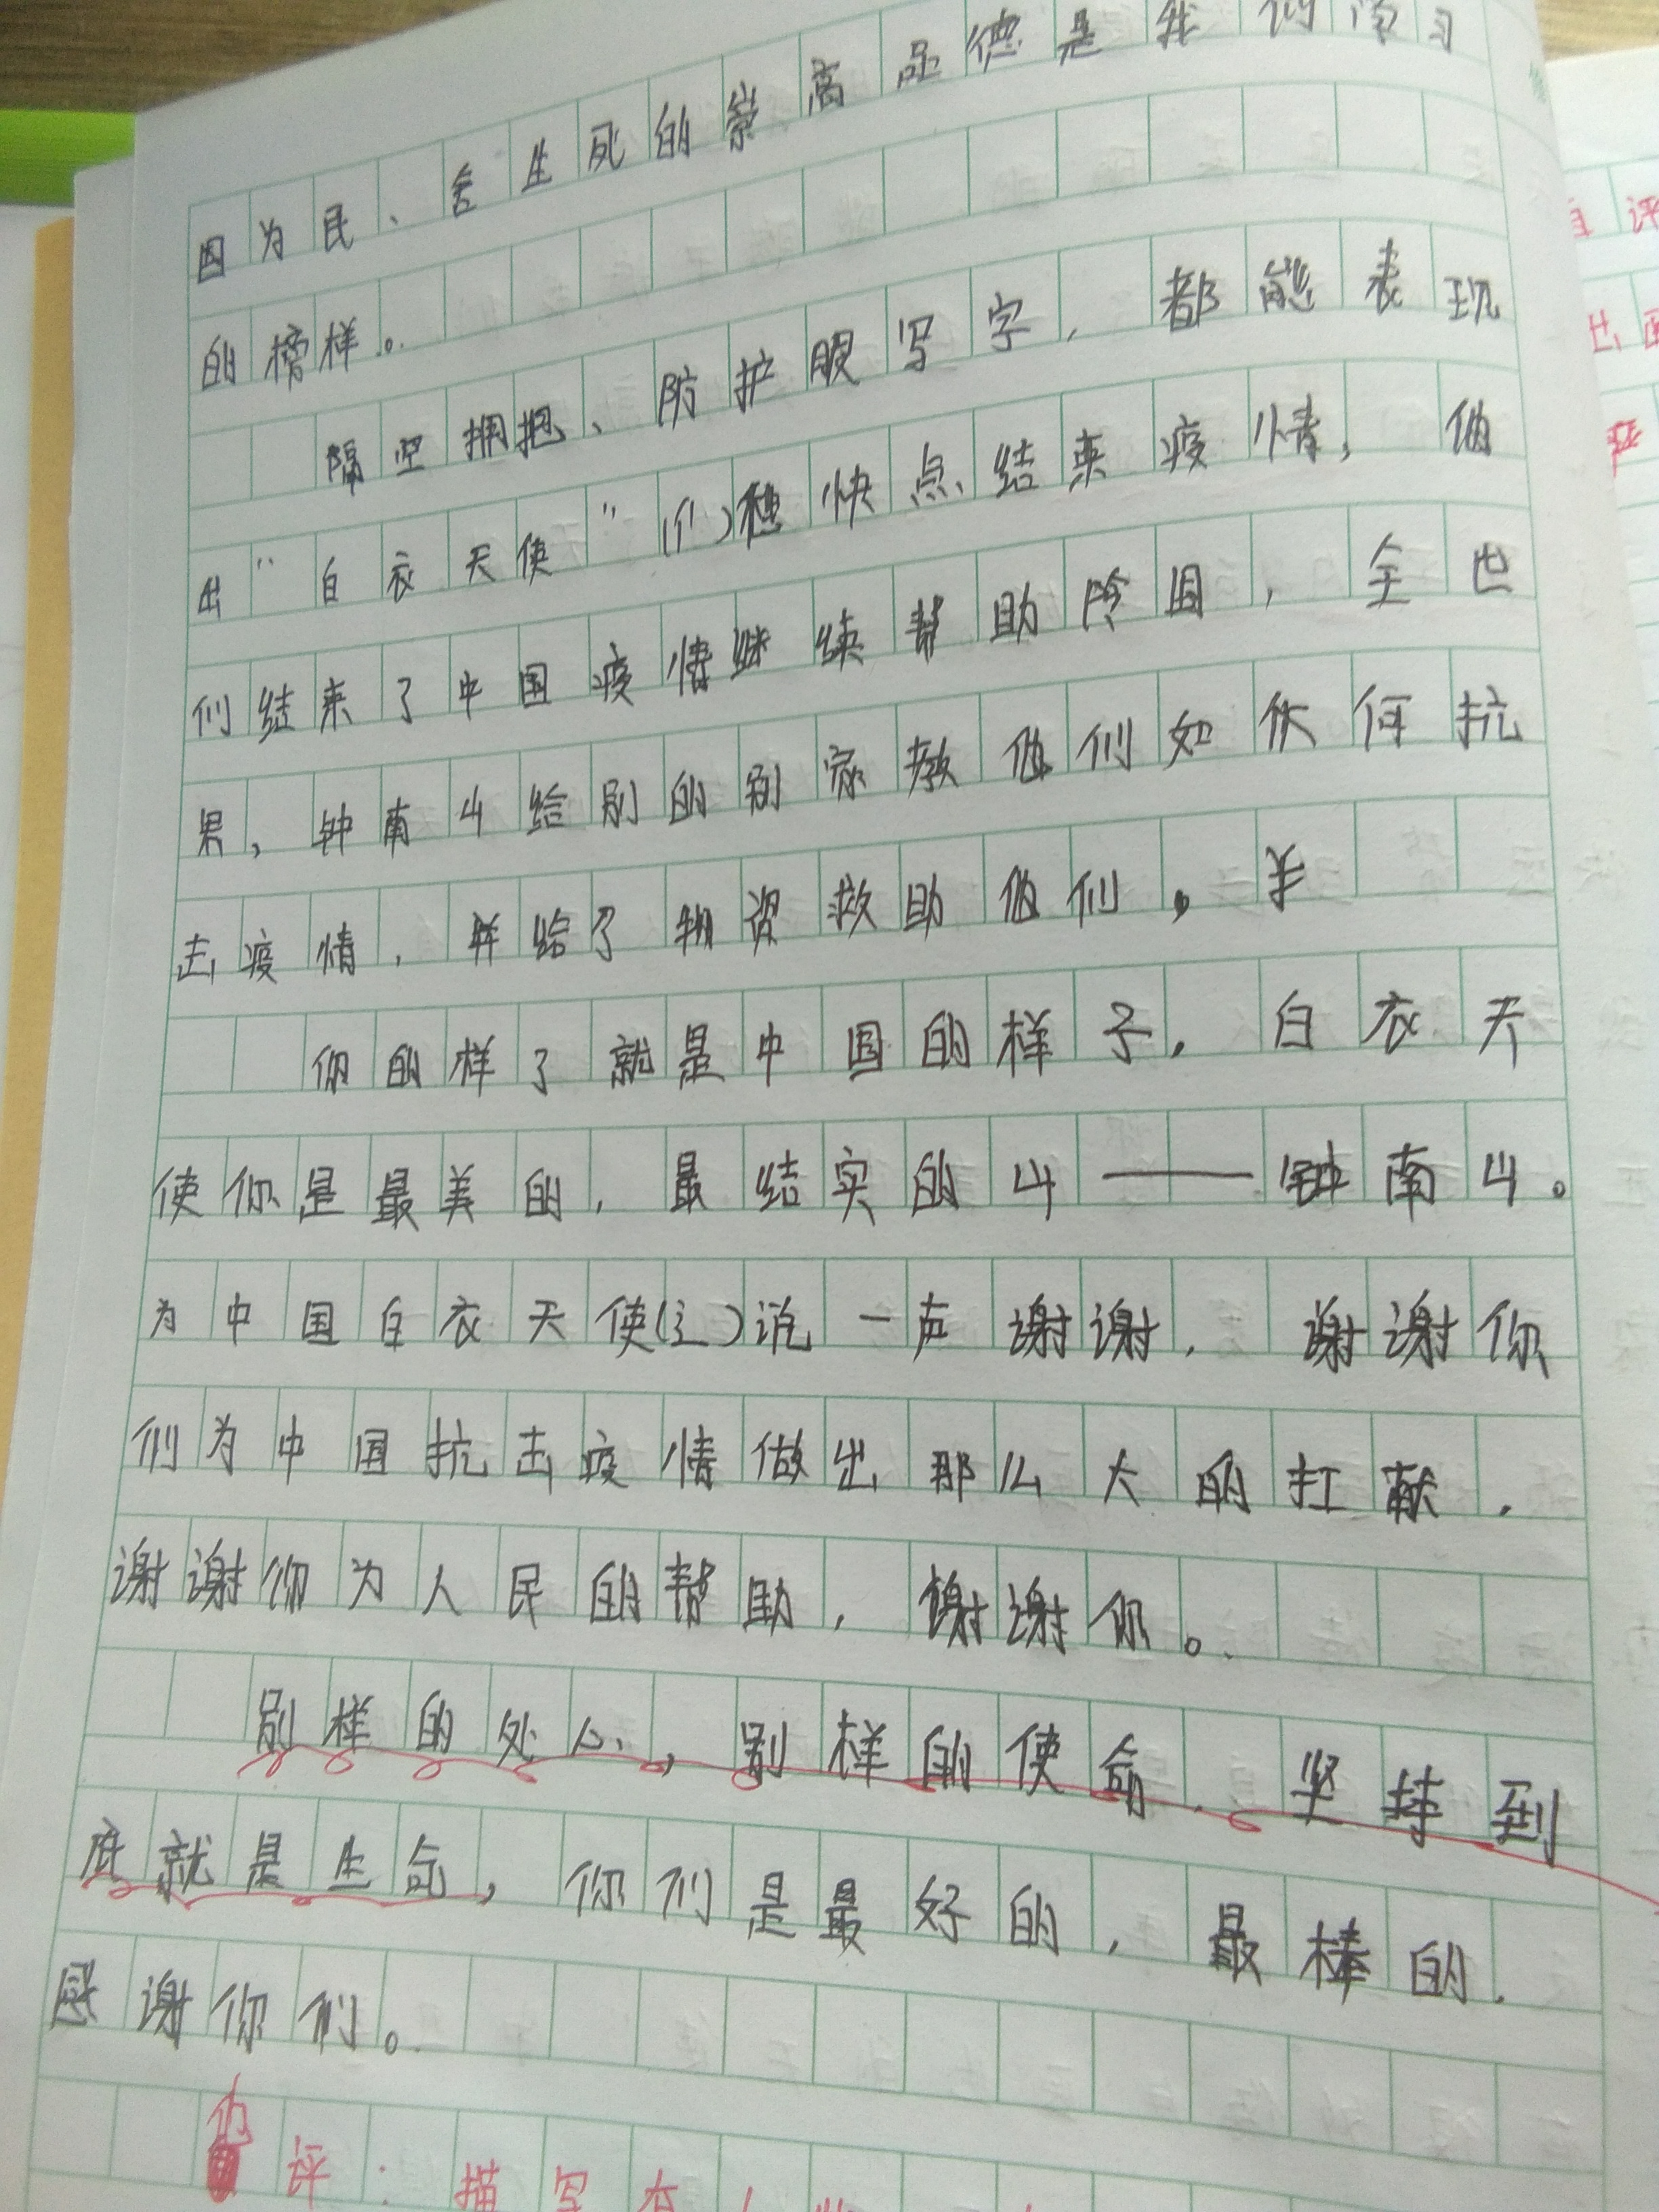 因为民、舍生死的崇高品德是我们学习
的榜样。
隔空拥抱、防护服写字，都能表现
出“白衣天使”(们)穗快点结束疫情，他
们结束了中国疫情继续帮助外国，全世
界，钟南山给别的别家教他们如伙何抗
击疫情，并给了物资救助他们。
你的样了就是中国的样子，白衣天
使你是最美的，最结实的山——钟南山。
为中国白衣天使(们)说一声谢谢，谢谢你
们为中国抗击疫情做出那么大的扛献，
谢谢你为人民的帮助，谢谢你。
别样的处心，别样的使命，坚持到
底就是生命，你们是最好的，最棒的，
感谢你们。
他评：描写
自评
出